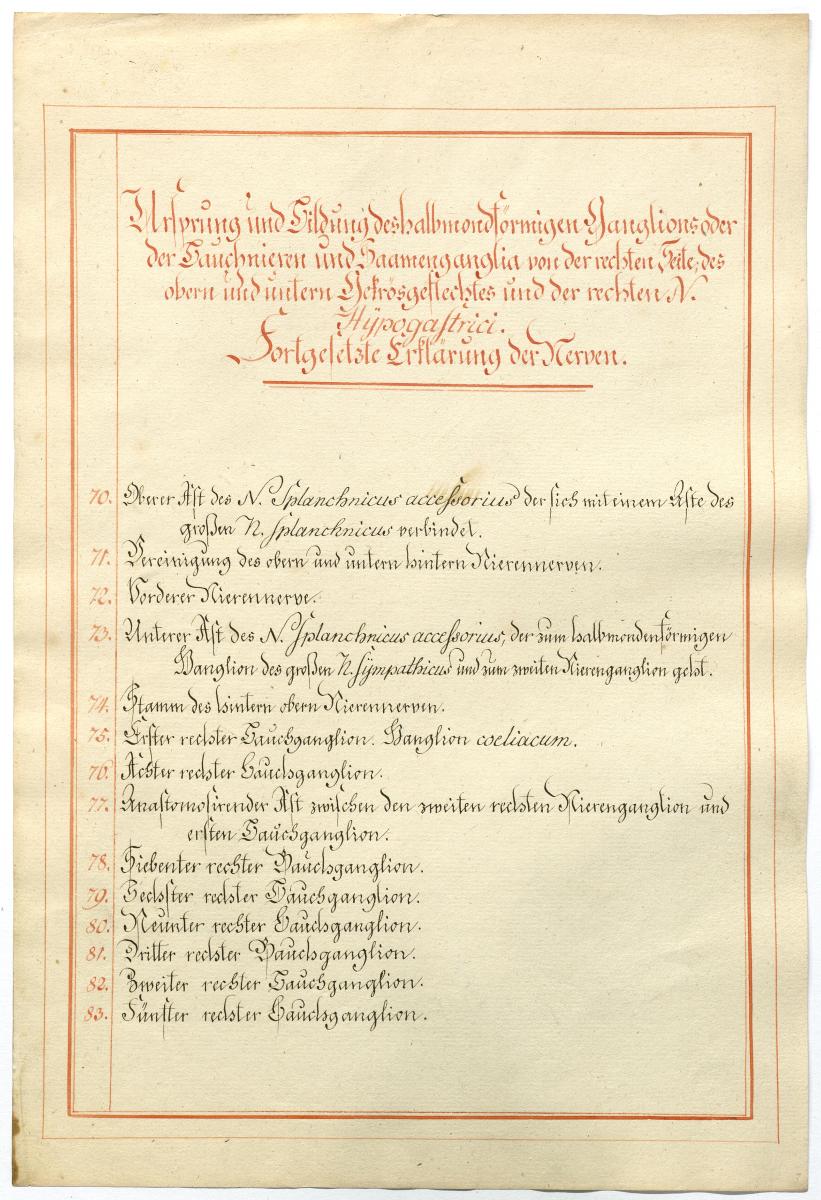 Ursprung und Bildung des halbmondförmigen Ganglions oder
der Bauchnieren und Saamenganglia von der rechten Seite, des
obern und untern Gekrösgeflechtes und der rechten N.
Hÿpogastrici.
Fortgesetzte Erklärung der Nerven.
70. Oberer Ast des N. Splanchnicus accessorius der sich mit einem Aste des
großen N. Splanchnicus verbindet.
71. Vereinigung des obern und untern hintern Nierennerven.
72. Vorderer Nierennerve.
73. Unterer Ast des N. Splanchnicus accessorius, der zum halbmondenförmigen
Ganglion des großen N. Sÿmpathicus und zum zweiten Nierenganglion geht.
74. Stamm des hintern obern Nierennerven.
75. Erster rechter Bauchganglion. Ganglion coeliacum.
76. Achter rechter Bauchganglion.
77. Anastomosirender Ast zwischen den zweiten rechten Nierenganglion und
ersten Bauchganglion.
78. Siebenter rechter Bauchganglion.
79. Sechster rechter Bauchganglion.
80. Neunter rechter Bauchganglion.
81. Dritter rechter Bauchganglion.
82. Zweiter rechter Bauchganglion.
83. Fünfter rechter Bauchganglion.